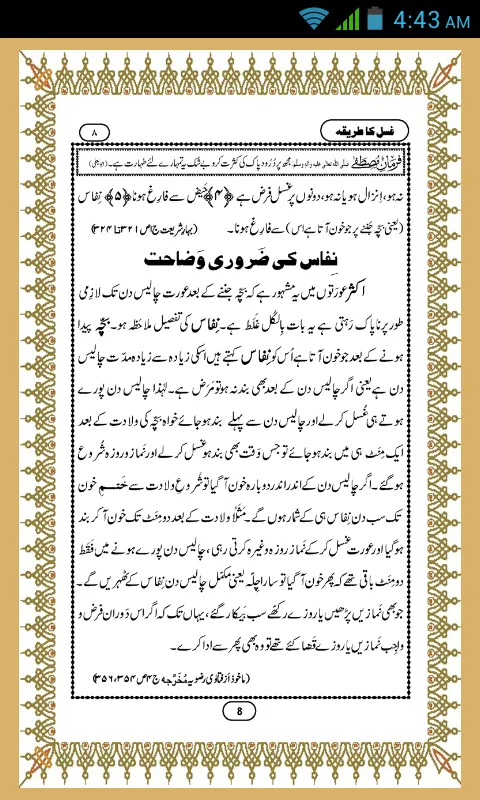 4:43 AM
غسل کا طریقہ
۸
فرمانِ مصطَفٰے صلی اللہ تعالٰی علیہ والہ وسلم: مجھ پر دُرُودِ پاک کی کثرت کرو بے شک یہ تمہارے لئے طہارت ہے۔ (ابو یعلیٰ)
نہ ہو، اِنزال ہو یا نہ ہو، دونوں پر غسل فرض ہے ﴿۴﴾ حَیض سے فارِغ ہونا ﴿۵﴾ نِفاس
(یعنی بچّہ جَننے پر جو خون آتا ہے اس) سے فارِغ ہونا۔ (بہارِ شریعت ج۱ ص۳۲۱ تا ۳۲۴)
نِفاس کی ضَروری وَضاحت
اکثر عورَتوں میں یہ مشہور ہے کہ بچّہ جننے کے بعد عورت چالیس دن تک لازِمی
طور پر ناپاک رَہتی ہے یہ بات بِالکُل غَلَط ہے۔ نِفاس کی تفصیل ملاحَظہ ہو۔ بچّہ پیدا
ہونے کے بعد جو خون آتا ہے اُس کو نِفاس کہتے ہیں اسکی زیادہ سے زیادہ مدّت چالیس
دن ہے یعنی اگر چالیس دن کے بعد بھی بند نہ ہو تو مَرَض ہے۔ لہٰذا چالیس دن پورے
ہوتے ہی غُسل کر لے اور چالیس دن سے پہلے بند ہو جائے خواہ بچّہ کی ولادت کے بعد
ایک مِنَٹ ہی میں بند ہو جائے تو جس وَقت بھی بند ہو غسل کر لے اور نَماز و روزہ شُروع
ہو گئے۔ اگر چالیس دن کے اندر اندر دوبارہ خون آ گیا تو شُروعِ ولادت سے ختمِ خون
تک سب دن نِفاس ہی کے شمار ہوں گے۔ مَثَلًا ولادت کے بعد دو مِنَٹ تک خون آ کر بند
ہو گیا اور عورت غسل کر کے نَماز روزہ وغیرہ کرتی رہی، چالیس دن پورے ہونے میں فَقَط
دو مِنَٹ باقی تھے کہ پھر خون آ گیا تو سارا چِلّہ یعنی مکمّل چالیس دن نِفاس کے ٹھہریں گے۔
جو بھی نَمازیں پڑھیں یا روزے رکھے سب بَیکار گئے، یہاں تک کہ اگر اس دَوران فرض و
واجِب نَمازیں یا روزے قَضا کئے تھے تو وہ بھی پھر سے ادا کرے۔
(ماخوذ اَز فتاوٰی رضویہ مُخَرَّجہ ج۴ ص۳۵۴، ۳۵۶)
8